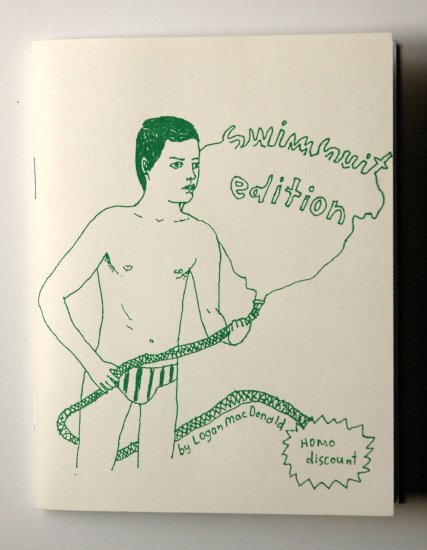 swimsuit
edition
by Logan MacDonald
HOMO
discount